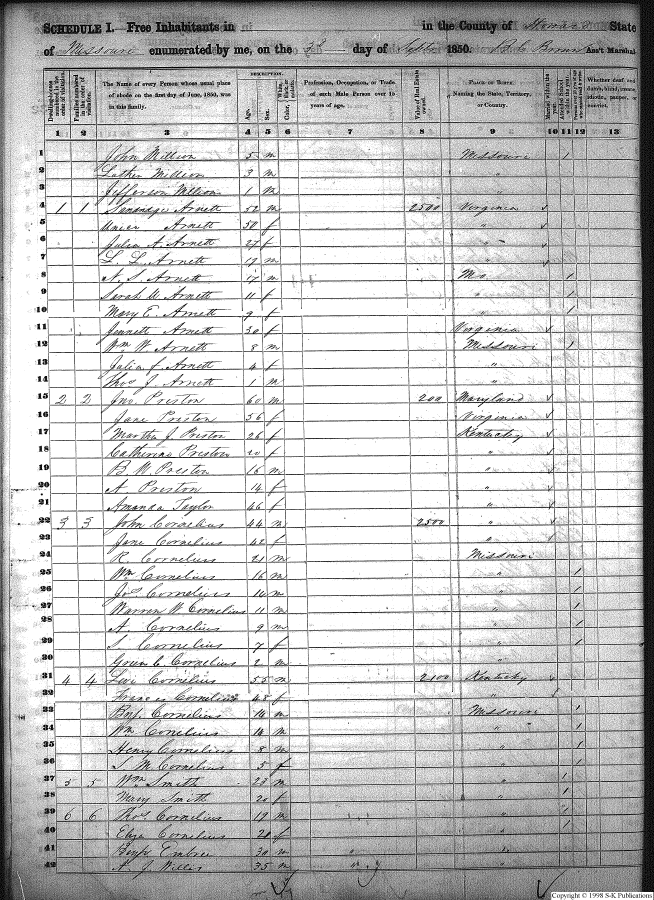 SCHEDULE I. Free Inhabitants in in the County of Howard State
of Missouri enumerated by me, on the 3d day of Septr 1850. Brown Ass't Marshal
DESCRIPTION.
Dwelling-houses numbered in the order of visitation.
Families numbered in the order of visitation.
The Name of every Person whose usual place of abode on the first day of June, 1850, was in this family.
Age.
Sex.
Profession, Occupation, or Trade of each Male Person over 15 years of age.
Value of Real Estate owned.
PLACE OF BIRTH. Naming the State, Territory, or Country.
Whether deaf and dumb, blind, insane, idiotic, pauper, or convict.
1 2 3 4 5 6 7 8 9 10 11 12 13
1 John Million 5 m Missouri 1
2 Luther Million 3 m "
3 Jefferson Million 1 m "
4 1 1 Arnett 52 m 2500 Virginia
5 Arnett 50 f "
6 Julia A. Arnett 27 f "
7 L. L. Arnett 19 m "
8 A. S. Arnett 17 m Mo 1
9 Sarah Arnett 11 f " 1
10 Mary E. Arnett 9 f " 1
11 Jennett Arnett 30 f Virginia
12 Wm W. Arnett 8 m Missouri 1
13 Julia f. Arnett 4 f "
14 Thos J. Arnett 1 m "
15 2 2 Jno. Preston 60 m 200 Maryland
16 Jane Preston 56 f Virginia
17 Martha J. Preston 26 f Kentucky
18 Catherine Preston 20 f "
19 B. W. Preston 16 m "
20 A Preston 14 f "
21 Amanda Taylor 46 f "
22 3 3 John Cornelius 44 m 2500 "
23 Jane Cornelius 42 f "
24 R. Cornelius 21 m Missouri
25 Wm Cornelius 16 m " 1
26 Jos Cornelius 14 m " 1
27 Warren W Cornelius 11 m " 1
28 A Cornelius 9 m " 1
29 S Cornelius 7 f " 1
30 Cornelius 2 m "
31 4 4 Levi Cornelius 55 m 2100 Kentucky
32 Frances Cornelius 45 f "
33 Benj. Cornelius 14 m Missouri 1
34 Wm Cornelius 14 m " 1
35 Henry Cornelius 8 m " 1
36 S M Cornelius 5 f " 1
37 5 5 Wm Smith 23 m " 1
38 Mary Smith 20 f " 1
39 6 6 Thos Cornelius 19 m " 1
40 Eliza Cornelius 20 f " 1
41 Benj Embree 30 m " "
42 A J Willis 35 m " "
Copyright © 1998 S-K Publications